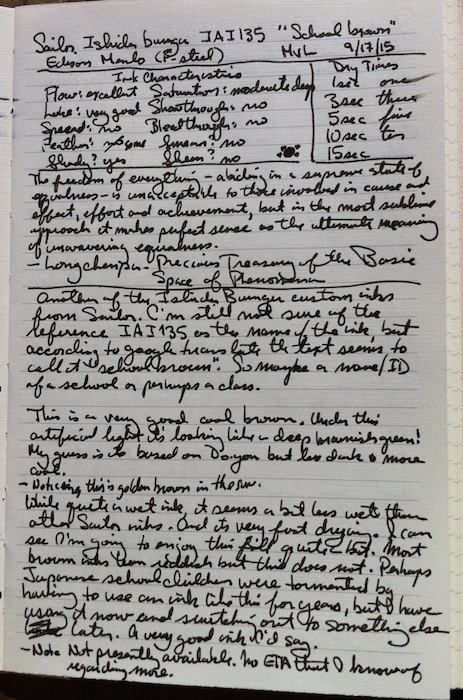 Sailor Ishida bungu IAI135 "School brown"
Edison Menlo (F-steel) MyL 9/17/15
Ink Characteristics
Flow: excellent Saturation: moderate deep
Lube: very good Showthrough: no
Spread: no Bleedthrough: no
Feather: some Smear: no
Shady? yes Sheen? no
Dry Times
1sec one
3sec three
5sec five
10sec ten
15sec
The freedom of everything - abiding in a supreme state of
equalness - is unacceptable to those involved in cause and
effect, effort and achievement, but in the most sublime
approach it makes perfect sense as the ultimate meaning
of unwavering equalness.
- Longchenpa - Precious Treasury of the Basic
Space of Phenomena
Another of the Ishida Bungu custom inks
from Sailor. I'm still not sure of the
reference IAI135 as the name of the ink but
according to google translate the text seems to
call it "school brown". So maybe a name/ID
of a school or perhaps a class.
This is a very good cool brown. Under this
artificial light it's looking like a deep brownish green!
My guess is its based on Do-you but less dark & more
cool.
- Noticing this is golden brown in the sun.
While quite a wet ink, it seems a bit less wet than
other Sailor inks. And its very fast drying. I can
see I'm going to enjoy this fall quite a bit. Most
brown inks lean reddish but this does not. Perhaps
Japanese school children were tormented by
having to use an ink like this for years, but I have
using it now and switching out to something else
later. A very good ink I'd say.
- Note Not presently available. No ETA that I know of
regarding more.